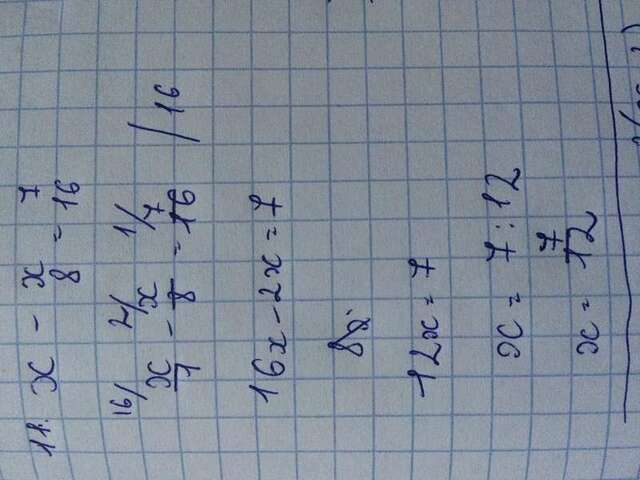 11. x - x/8 = 7/16
16/ 2/ 1/
x/1 - x/8 = 7/16 / 16
16x - 2x = 7
8x
12x = 7
x = 7 : 12
x = 7/12